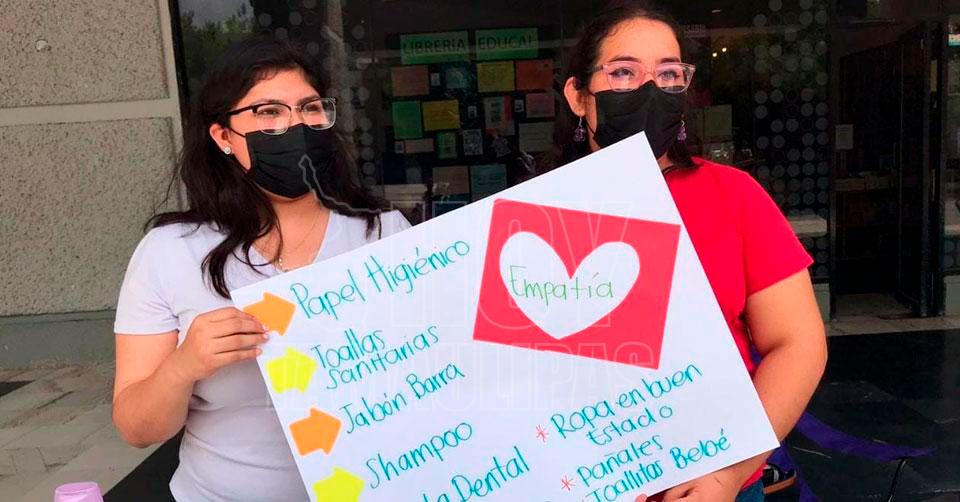 LIBRERIA EDUCAL
Empatía
Papel Higiénico
Toallas
Sanitarias
Jabón Barra
Shampoo
Dental
* Ropa en buen
Estado
* Pañales
* Toallitas Bebé
HOY
TAMAULIPAS